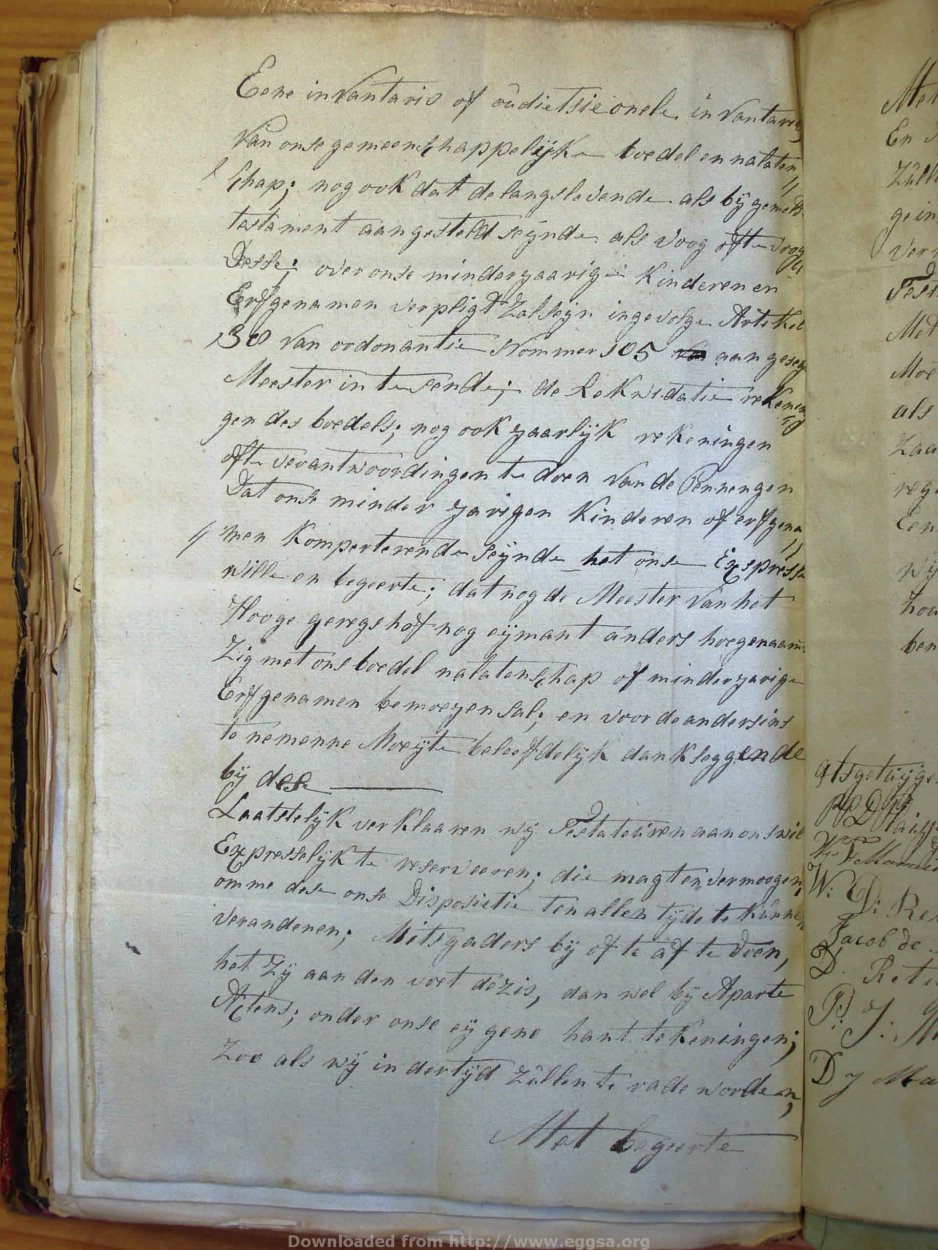 Eene invantaris of audietsieonele invantaris
Van onse gemeenschappelijke boedel en nalaten
schap; nog ook dat de langslevende als bij gemelt
tastament aangesteld seijnde als voog ofte voog
desse; over onse minderjaarige Kinderen en
Erfgenamen verpligt Zal seijn ingevolge Artikel
30 van ordonantie Nommer 105 aan geseg
Meester in te sende; de Lekwidatie rekenin
gen des boedels; nog ook jaarlijk rekeningen
ofte verantwoordingen te doen van de Pennengen
Dat onse minder jarigen Kinderen of erfgena
men Komperterende seijnde het onse Expresse
wille en begeerte; dat nog de Meester van het
Hooge geregshof nog eijmant anders hoegenaam
Zig met ons boedel nalatenschap of minderjarige
Erfgenamen bemoeyen sal; en voor de andersins
te nemenne Moeijte beleefdelijk dankseggende
bij dese
Laatstelijk verklaaren wij Testateuren aan ons wil
Expresselijk te reserveeren; die magt en vermoogen
omme dese onse Disposietie ten allen tijde te kunnen
veranderen; Mitsgaders bij of te af te doen,
het Zij aan den voet dezis, dan wel bij Aparte
Actens; onder onse eijgene hant tekeningen;
Zoo als wij in der tijd Zullen te rade worden,
Met begeerte
Met
En
ge in
als
wij
ben
Als getuijge
W: D: Re
Jacob de
D. Reti
P: J:
D J Ma
Downloaded from http://www.eggsa.org